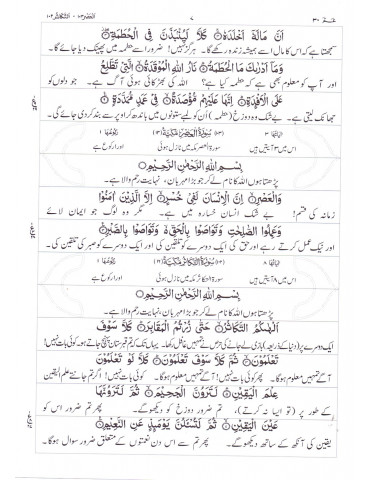 عم ۳۰ ۷ العصر ۱۰۳ - التکاثر ۱۰۲
اَنَّ مَالَهٗۤ اَخْلَدَهٗ ۚ كَلَّا لَيُنْۢبَذَنَّ فِى الْحُطَمَةِ ۖ
سمجھتا ہے کہ اس کا مال اسے ہمیشہ زندہ رکھے گا۔ ہرگز نہیں! ضرور اسے حطمہ میں پھینک دیا جائے گا۔
وَمَاۤ اَدْرٰىكَ مَا الْحُطَمَةُ ؕ نَارُ اللّٰهِ الْمُوْقَدَةُ ۙ الَّتِىْ تَطَّلِعُ
اور آپ کو معلوم بھی ہے کہ حطمہ کیا ہے؟ اللہ کی بھڑکائی ہوئی آگ ہے۔ جو دلوں کو
عَلَى الْاَفْـِٕدَةِ ؕ اِنَّهَا عَلَيْهِمْ مُّؤْصَدَةٌ ۙ فِىْ عَمَدٍ مُّمَدَّدَةٍ
جھانک لیتی ہے۔ بے شک وہ دوزخ (حطمہ) ان کو لمبے ستونوں میں باندھ کر اوپر سے بند کر دی جائے گی۔
اٰیاتها ۳ (۱۰۳) سُوْرَةُ الْعَصْرِ مَكِّيَّةٌ (۱۳) رکوعها ۱
اس میں ۳ آیتیں ہیں سورۃ العصر مکہ میں نازل ہوئی اور ا رکوع ہے
بِسْمِ اللّٰهِ الرَّحْمٰنِ الرَّحِيْمِ
پڑھتا ہوں اللہ کا نام لے کر جو بڑا مہربان، نہایت رحم والا ہے۔
وَالْعَصْرِ ۙ اِنَّ الْاِنْسَانَ لَفِىْ خُسْرٍ ۙ اِلَّا الَّذِيْنَ اٰمَنُوْا
زمانہ کی قسم! بے شک انسان خسارہ میں ہے۔ مگر وہ لوگ جو ایمان لائے
وَعَمِلُوا الصّٰلِحٰتِ وَتَوَاصَوْا بِالْحَقِّ ۙ وَتَوَاصَوْا بِالصَّبْرِ
اور نیک عمل کرتے رہے اور حق کی ایک دوسرے کو تلقین کی اور ایک دوسرے کو صبر کی تلقین کی۔
اٰیاتها ۸ (۱۰۲) سُوْرَةُ التَّكَاثُرِ مَكِّيَّةٌ (۱۶) رکوعها ۱
اس میں ۸ آیتیں ہیں سورۃ التکاثر مکہ میں نازل ہوئی اور ا رکوع ہے
بِسْمِ اللّٰهِ الرَّحْمٰنِ الرَّحِيْمِ
پڑھتا ہوں اللہ کا نام لے کر جو بڑا مہربان، نہایت رحم والا ہے۔
اَلْهٰٮكُمُ التَّكَاثُرُ ۙ حَتّٰى زُرْتُمُ الْمَقَابِرَ ؕ كَلَّا سَوْفَ
ایک دوسرے پر (دنیا کے ذریعہ) بازی لے جانے کی حرص نے تمہیں غافل رکھا۔ یہاں تک کہ تم قبرستان پہنچ جاتے ہو۔ کوئی بات نہیں!
تَعْلَمُوْنَ ۙ ثُمَّ كَلَّا سَوْفَ تَعْلَمُوْنَ ؕ كَلَّا لَوْ تَعْلَمُوْنَ
آگے تمہیں معلوم ہوگا۔ پھر کوئی بات نہیں! آگے تمہیں معلوم ہوگا۔ کوئی بات نہیں! اگر تم جانتے علم الیقین
عِلْمَ الْيَقِيْنِ ؕ لَتَرَوُنَّ الْجَحِيْمَ ۙ ثُمَّ لَتَرَوُنَّهَا
کے طور پر (تو ایسا نہ کرتے)، تم ضرور دوزخ کو دیکھو گے۔ پھر تم اس کو
عَيْنَ الْيَقِيْنِ ۙ ثُمَّ لَتُسْـَٔلُنَّ يَوْمَٮِٕذٍ عَنِ النَّعِيْمِ
یقین کی آنکھ کے ساتھ دیکھو گے۔ پھر تم سے اس دن نعمتوں کے متعلق ضرور سوال ہوگا۔